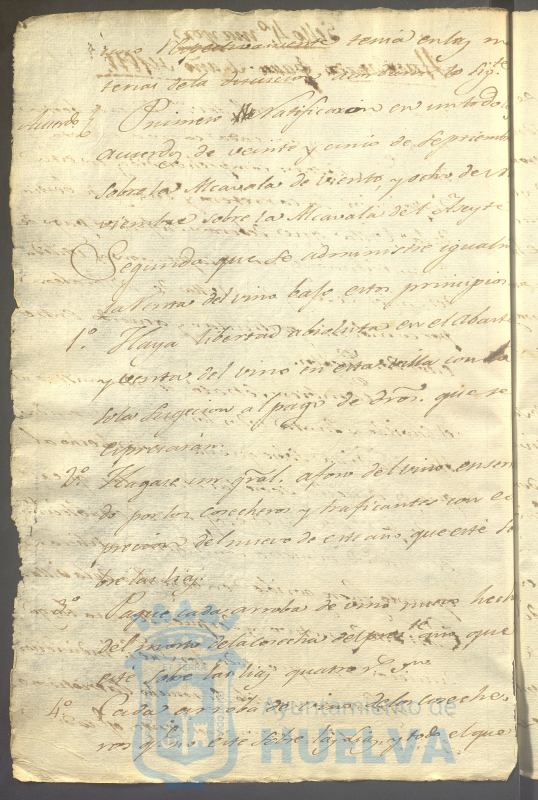 respectivamente tenia en las ma
terias de la
Acuerdo
Primero Ratificaron en un todo
acuerdos de veinte y cinco de Septiembre
sobre la Alcavala de viento, y ocho de No
viembre sobre la Alcavala del Aseyte
Segundo que se administre igualm
la Venta del vino bajo estos principios
1.º Haya libertad absoluta en el Abasto
y venta del vino en esta Villa con la
sola sugecion al pago de dros. que se
expresarán
2.º Hagase un gral. aforo del vino
do por los cosecheros y traficantes con ex
del nuevo de este año que esté so
bre las lias.
3.º Pague cada arroba de vino nuevo hecho
del mosto de la cosecha del año que
esté sobre las lias quatro rs. vn
4.º Cada arroba de vino de los coseche
ros q.e no esté sobre las lias y todo el que
Ayuntamiento de
HUELVA